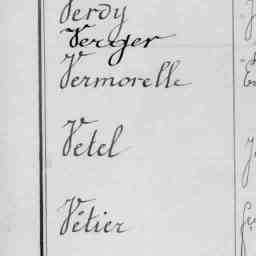 Verdy
Verger
Vermorelle
Vetel
Vétier